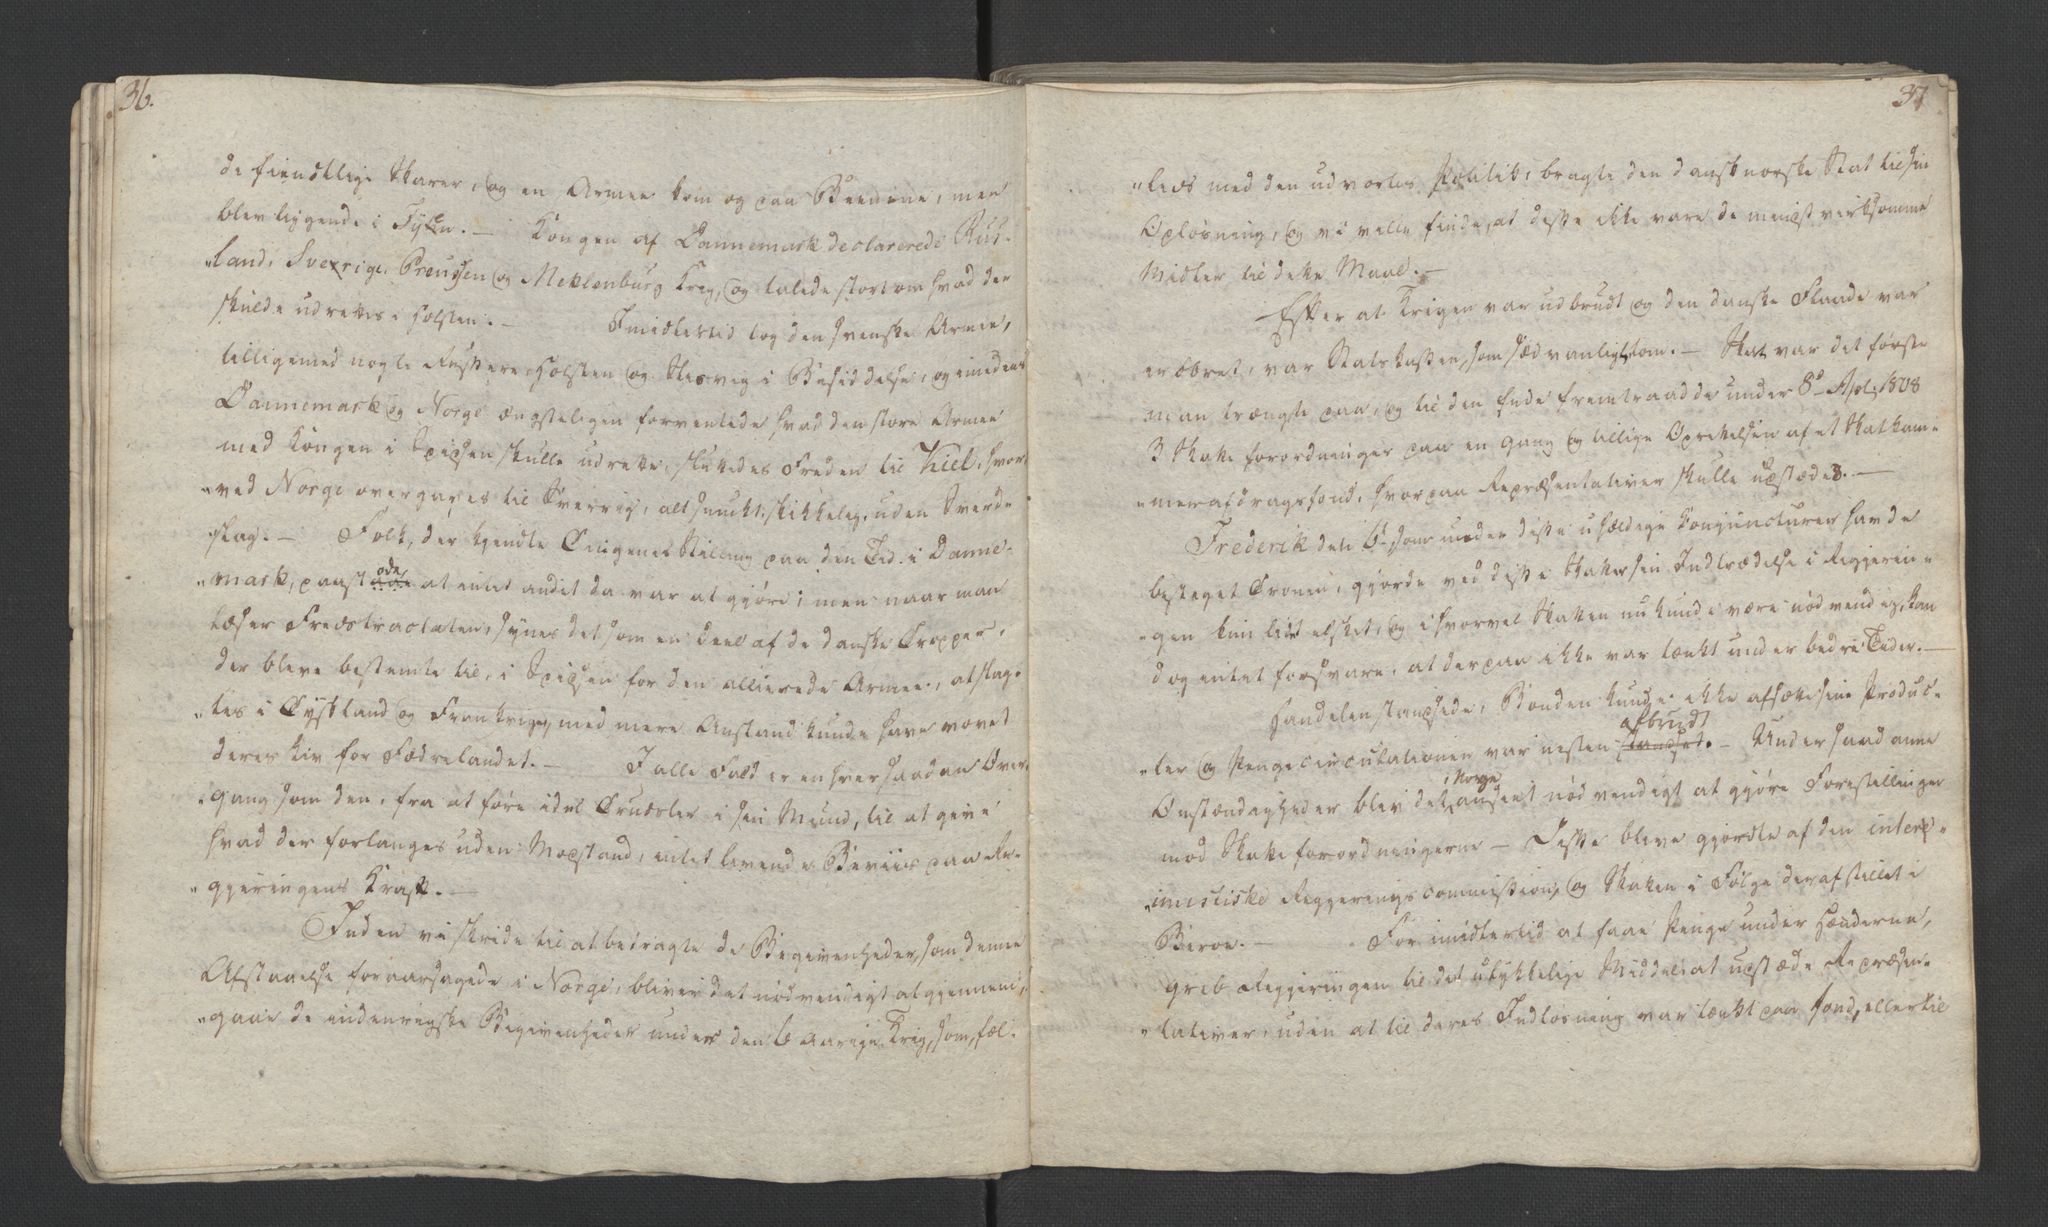 36.
de fiendtlige Skarer, og en Armee kom og paa Benene, men
blev liggende i Fyen. — Kongen af Dannemark declarerede Rus-
"land, Sverrige, Preussen og Meklenburg Krig, og talede stort om hvad der
skulde udrettes i Holsten. — Imidlertid tog den svenske Armee,
tilligemed nogle Russere Holsten og Slesvig i Besiddelse, og imedens
Dannemark og Norge ængsteligen forventede hvad den store Armee
med Kongen i Spidsen skulle udrette, sluttedes Freden til Kiel, hvor-
"ved Norge overgaves til Sverrig, alt smukt, skikkelig, uden Sverd-
slag. — Folk, der kjendte Tingenes Stilling paa den Tid i Danne-
"mark, paastode at intet andet da var at gjøre; men naar man
læser Fredstractaten, synes det som en Deel af de danske Tropper,
der bleve bestemte til, i Spidsen for den allierede Armee, at slag-
"tes i Tyskland og Frankrige, med mere Anstand kunde have vovet
deres Liv for Fædrelandet. — I alle Fald er en hver saadan Over-
"gang som den, fra at føre idel Trudsler i sin Mund, til at give
hvad der forlanges uden Modstand, intet levende Beviis paa Re-
"gjeringens Kraft. —
Inden vi skride til at betragte de Begivenheder, som denne
Afstaaelse foraarsagede i Norge, bliver det nødvendigt at gjennem-
"gaae de indenrigske Begivenheder under den 6 aarige Krig, som, føl-
37
"leds med den udvortes Politik, bragte den dansknorske Stat til sin
Opløsning, og vi ville finde, at disse ikke vare de mindst virksomme
Midler til dette Maal. —
Efter at Krigen var udbrudt og den danske Flaade var
erobret, var Statskassen, som sædvanligt, tom. — Skat var det første
man trængte paa, og til den Ende fremtraadde under 8d Apl: 1808
3 Skatteforordninger paa en gang og tillige Oprettelsen af et Skatkam-
"merafdragsfond, hvorpaa Repræsentativer skulle udstædes. —
Frederik den 6te som under disse uhældige Konjuncturer havde
besteget Tronen, gjorde ved disse Skatter sin Indtrædelse i Regjerin-
"gen kun lidet elsket, og ihvorvel Skatten nu kunde være nødvendig, kan
dog intet forsvare, at derpaa ikke var tænkt under bedre Tider. —
Handelen standsede, Bonden kunde ikke afsætte sine Produc-
"ter og Pengecirculationen var næsten afbrudt. — Under saadanne
Omstændigheder blev det i Norge anseet nødvendigt at gjøre Forestillinger
mod Skatteforordningerne — Disse bleve gjordte af den interi-
"imistiske Regjeringscommission, og Skatten i Følge deraf stillet i
Beroe. — For imidlertid at faae Penge under Hænderne,
greb Regjeringen til det ulykkelige Middel: at udstæde Repræsen-
"tativer, uden at til deres Indløsning var tænkt paa Fond, eller til